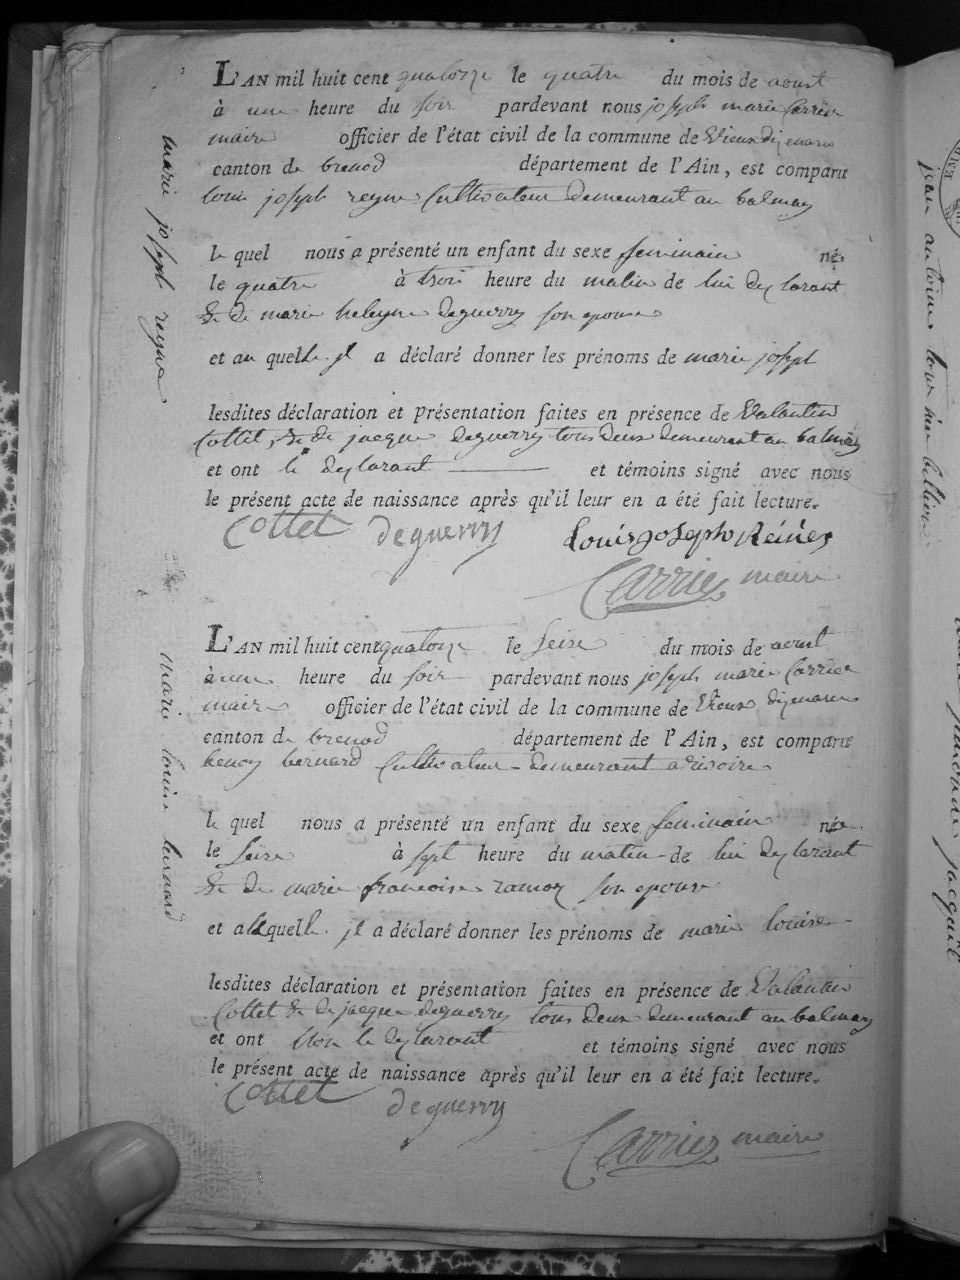 L'AN mil huit cent quatorze le quatre du mois de aoust
à une heure du soir pardevant nous joseph marie Carrier
maire officier de l'état civil de la commune de Vieux dizenave
canton de brenod département de l'Ain, est comparu
louis joseph reyne Cultivateur demeurant au balmay
le quel nous a présenté un enfant du sexe feminain né
le quatre à trois heure du matin de lui declarant
& de marie heleyne deguerry son epouse
et au quelle jl a déclaré donner les prénoms de marie joseph
lesdites déclaration et présentation faites en présence de Valantin
Cottet, & de jacque deguerry tous deux demeurant au balmay
et ont le declarant et témoins signé avec nous
le présent acte de naissance après qu'il leur en a été fait lecture.
Cottet deguerry Louis joseph Reines
Carrier maire
marie joseph reyne
L'AN mil huit cent quatorze le seise du mois de aoust
à une heure du soir pardevant nous joseph marie Carrier
maire officier de l'état civil de la commune de Vieux dizenave
canton de brenod département de l'Ain, est comparu
benoy bernard Cultivateur demeurant a
le quel nous a présenté un enfant du sexe feminain née
le seise à sept heure du matin de lui declarant
& de marie francoise ramoy son epouse
et a quelle jl a déclaré donner les prénoms de marie louise
lesdites déclaration et présentation faites en présence de Valantin
Cottet & de jacque deguerry tous deux demeurant au balmay
et ont non le declarant et témoins signé avec nous
le présent acte de naissance après qu'il leur en a été fait lecture.
Cottet deguerry
Carrier maire
marie louise bernard
jean antoine